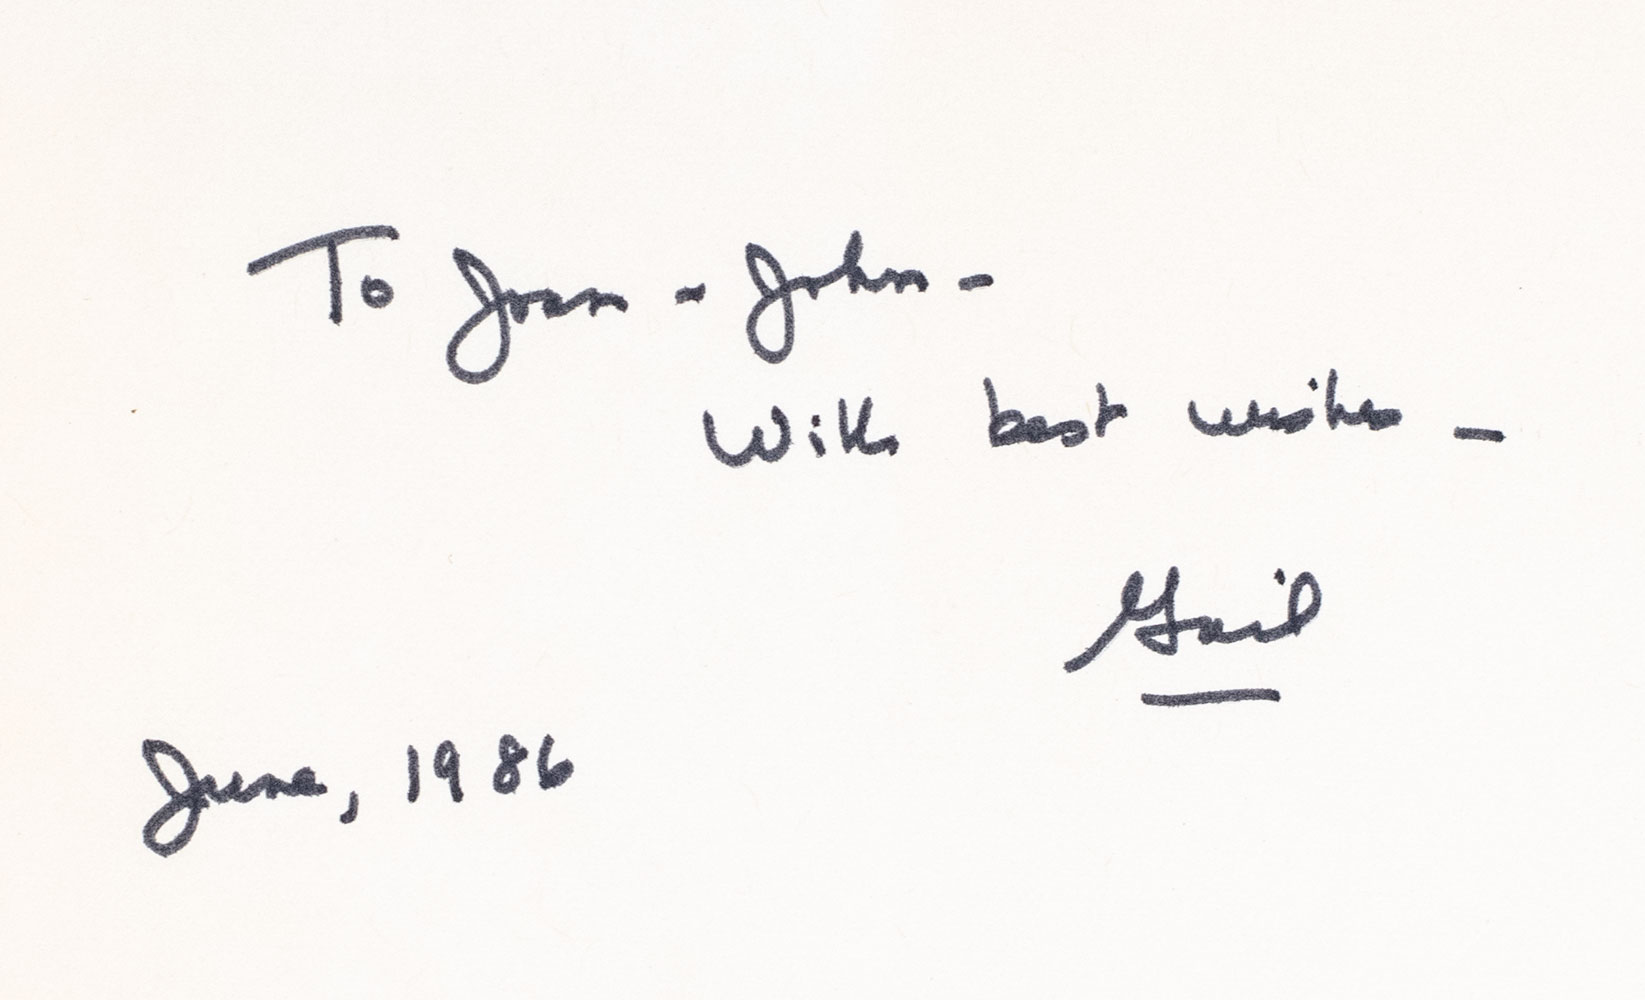 To Joan - John -
With best wishes -
Gail
June, 1986